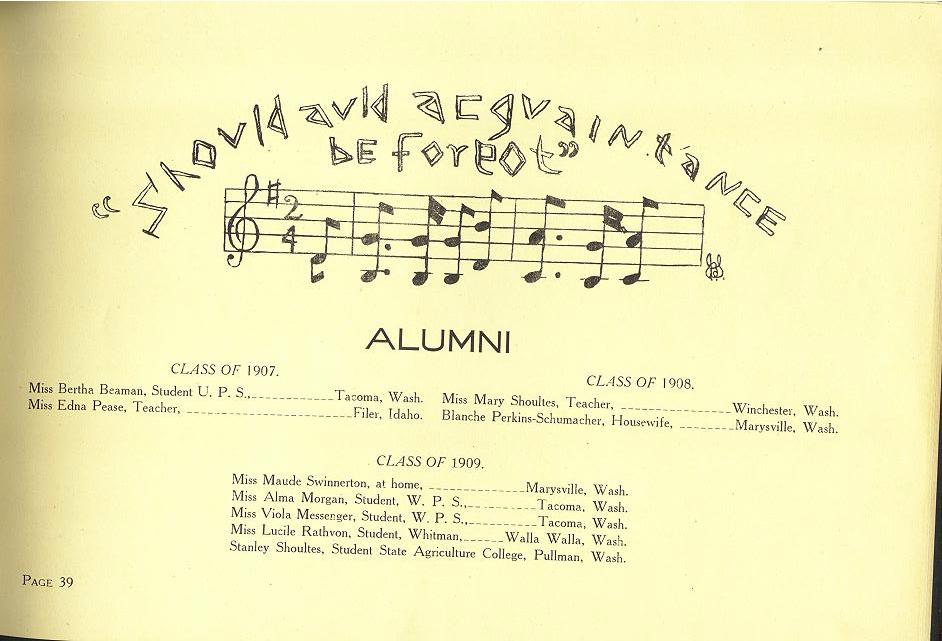 “Should auld acquaintance
be forgot”
2
4
ALUMNI
CLASS OF 1907.
Miss Bertha Beaman, Student U. P. S., Tacoma, Wash.
Miss Edna Pease, Teacher, Filer, Idaho.
CLASS OF 1908.
Miss Mary Shoultes, Teacher, Winchester, Wash.
Blanche Perkins-Schumacher, Housewife, Marysville, Wash.
CLASS OF 1909.
Miss Maude Swinnerton, at home, Marysville, Wash.
Miss Alma Morgan, Student, W. P. S., Tacoma, Wash.
Miss Viola Messenger, Student, W. P. S., Tacoma, Wash.
Miss Lucile Rathvon, Student, Whitman, Walla Walla, Wash.
Stanley Shoultes, Student State Agriculture College, Pullman, Wash.
PAGE 39